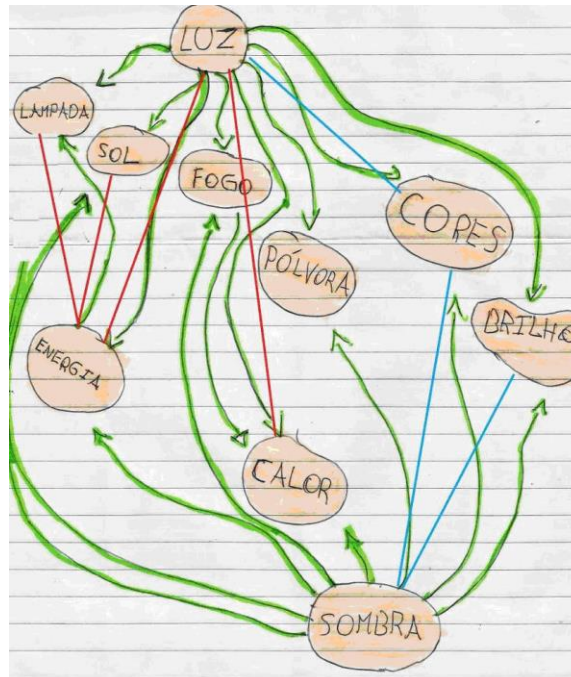 LUZ
LAMPADA
SOL
FOGO
CORES
PÓLVORA
BRILHO
ENERGIA
CALOR
SOMBRA